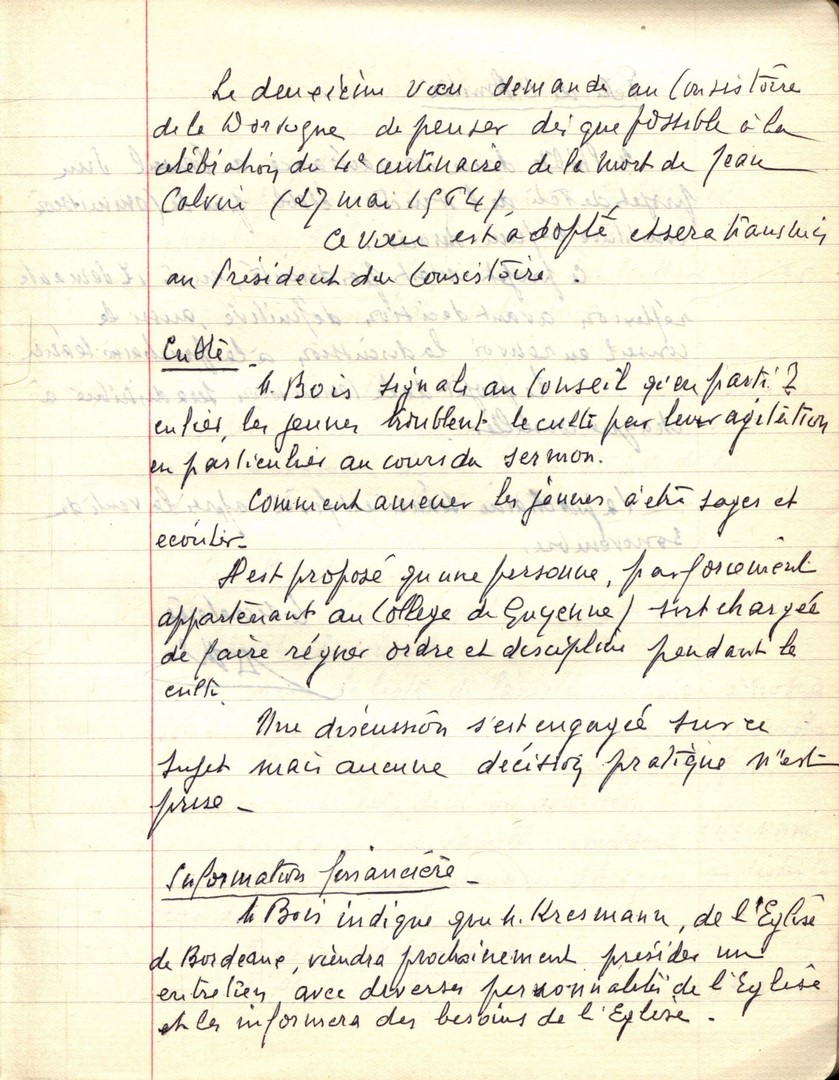 Le deuxième vœu demande au Consistoire
de la Dordogne de penser dès que possible à la
célébration du 4e centenaire de la mort de Jean
Calvin (27 mai 1964).
Ce vœu est adopté et sera transmis
au Président du Consistoire.
Culte -
M. Bois signale au Conseil qu'en parti
culier, les jeunes troublent le culte par leur agitation
en particulier au cours du sermon.
Comment amener les jeunes à être sages et
écouter -
Il est proposé qu'une personne, pas forcément
appartenant au Collège de Guyenne) soit chargée
de faire régner ordre et discipline pendant le
culte.
Une discussion s'est engagée sur ce
sujet mais aucune décision pratique n'est
prise -
Information financière -
M Bois indique que M. Kresmann, de l'Eglise
de Bordeaux, viendra prochainement présider un
entretien avec diverses personnalités de l'Eglise
et les informera des besoins de l'Eglise.